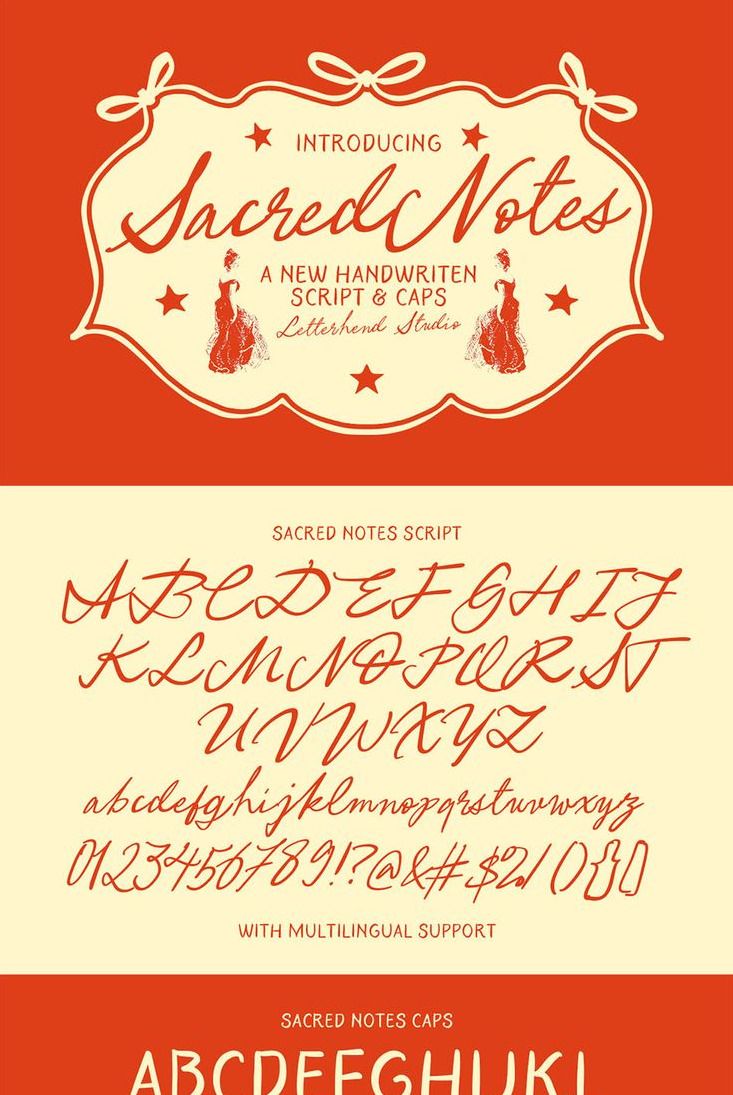 INTRODUCING
Sacred Notes
A NEW HANDWRITEN
SCRIPT & CAPS
Letterhend Studio
SACRED NOTES SCRIPT
ABCDEFGHIJ
KLMNOPQRST
UVWXYZ
abcdefghijklmnopqrstuvwxyz
0123456789!?@&#$%/(){}[]
WITH MULTILINGUAL SUPPORT
SACRED NOTES CAPS
ABCDEFGHIJKL